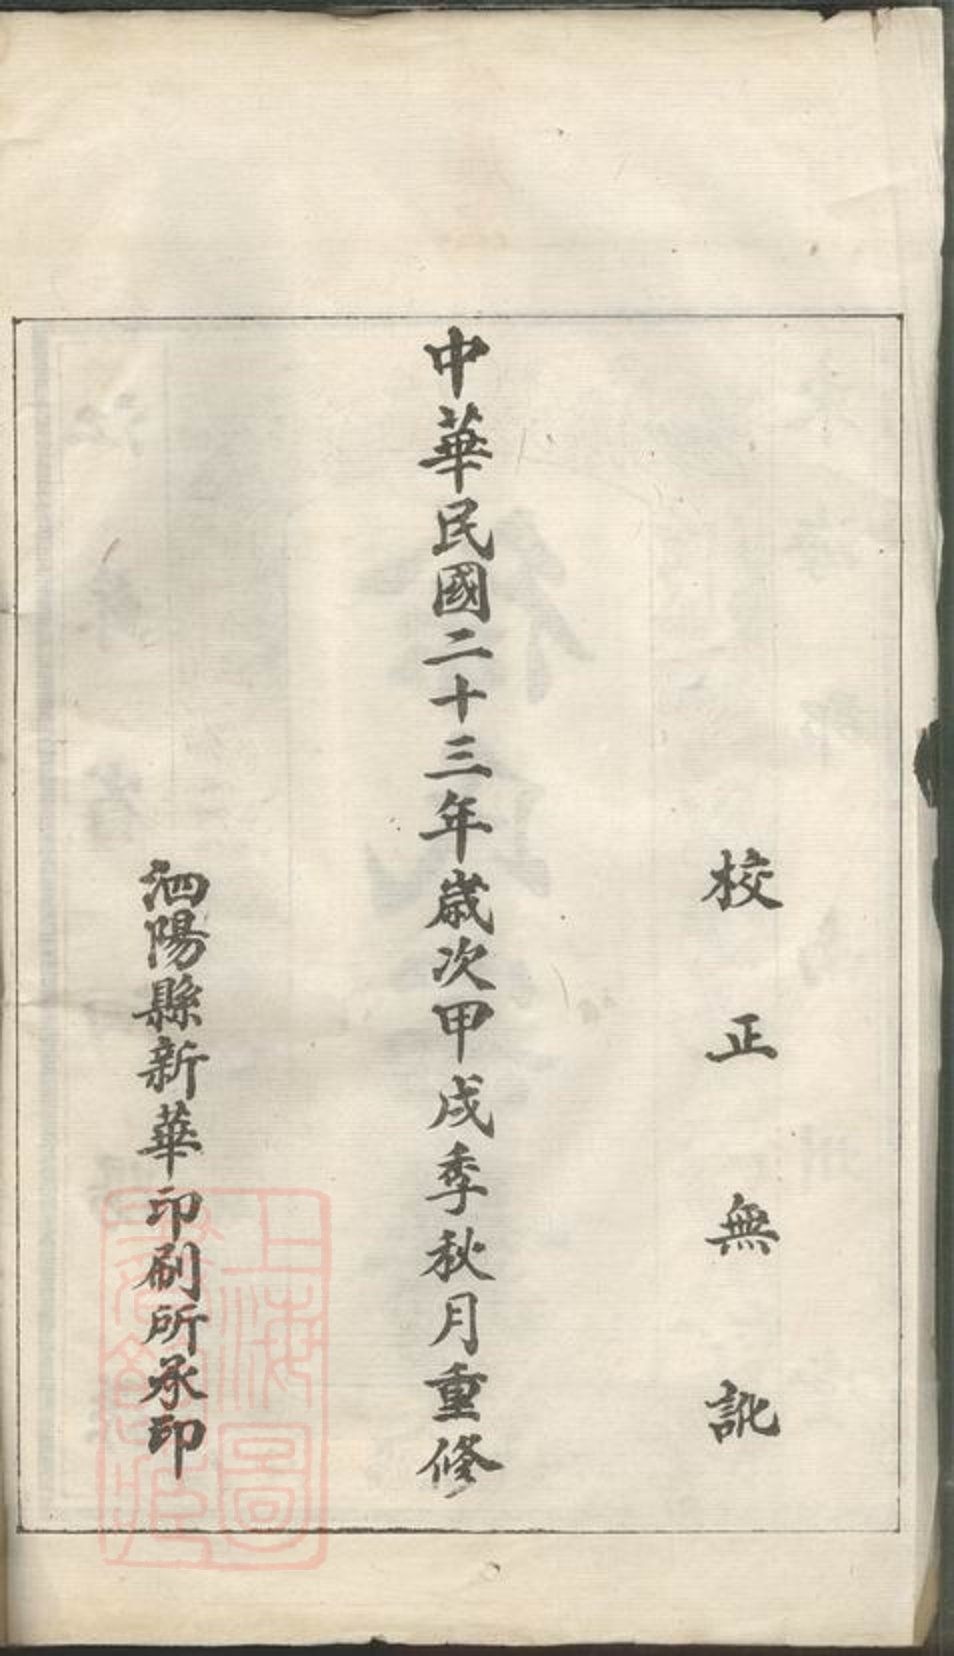 校正無訛
中華民國二十三年歲次甲戌季秋月重修
泗陽縣新華印刷所承印
上海圖書館藏